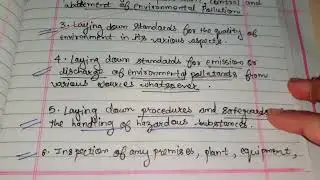 control and
abatement of Environmental Pollution
3. Laying down standards for the quality of
environment in its various aspects.
4. Laying down standards for emission or
discharge of environmental pollutants from
various sources whatsoever
5. Laying down procedures and safeguards
the handling of hazardous substances.
6. Inspection of any premises, plant, equipment,